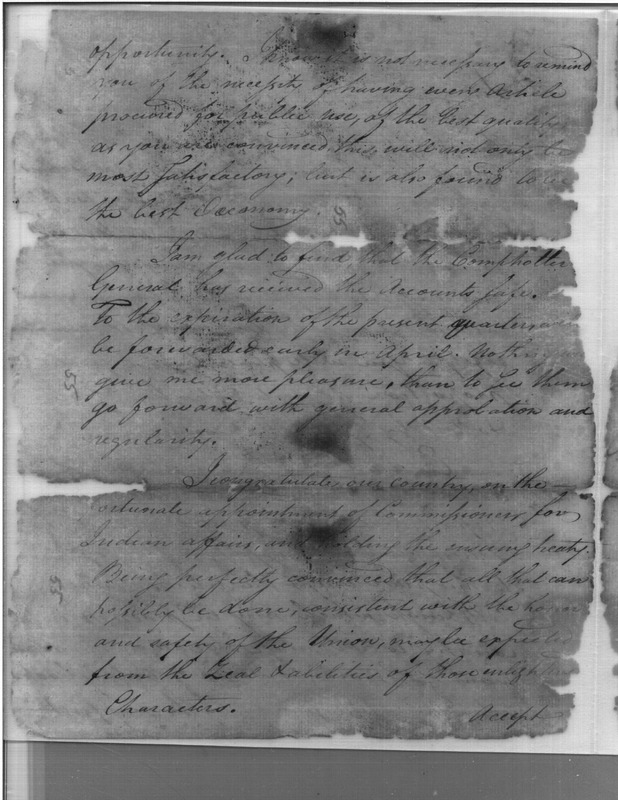 opportunity. I know it is not necessary to remind
you of the necessity of having every Article
procured for public use, of the best quality
as you are convinced this, will not only be
most Satisfactory, but is also found to be
the best Oeconomy.
I am glad to find, that the Comptroller
General has received the Accounts safe.
To the expiration of the present quarter
be forwarded early in April.
give me more pleasure, than to see them
go forward with general approbation and
regularity.
I congratulate our Country, on the
fortunate appointment of Commissioners for
Indian affairs, and holding the ensuing treaty.
Being perfectly convinced that all that can
possibly be done, consistent with the honor
and safety of the Union, may be expected
from the Zeal & abilities of those
Characters.
Accept
55
55
55